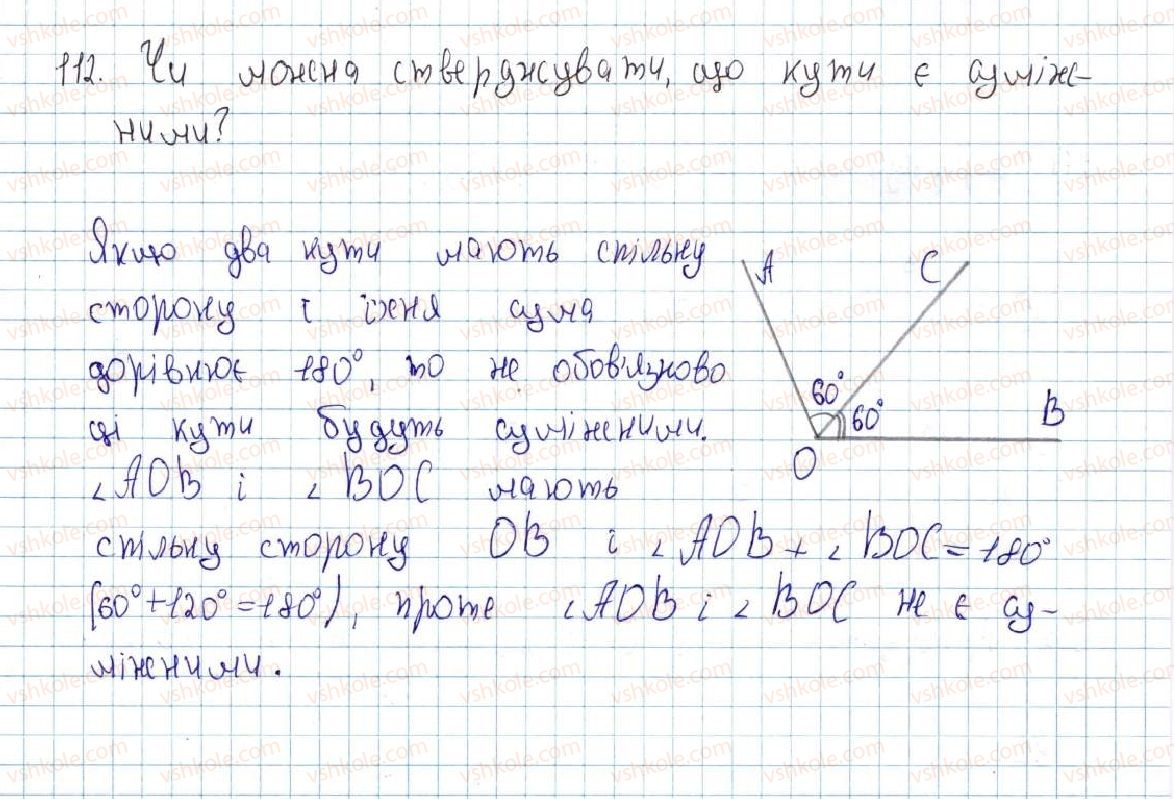 112. Чи можна стверджувати, що кути є суміж-
ними?
Якщо два кути мають спільну
сторону і їхня сума
дорівнює 180°, то не обов'язково
ці кути будуть суміжними.
∠AOB і ∠BOC мають
спільну сторону OB і ∠AOB + ∠BOC = 180°
(60° + 120° = 180°), проте ∠AOB і ∠BOC не є су-
міжними.
A
C
60°
60°
B
O
vshkole.com